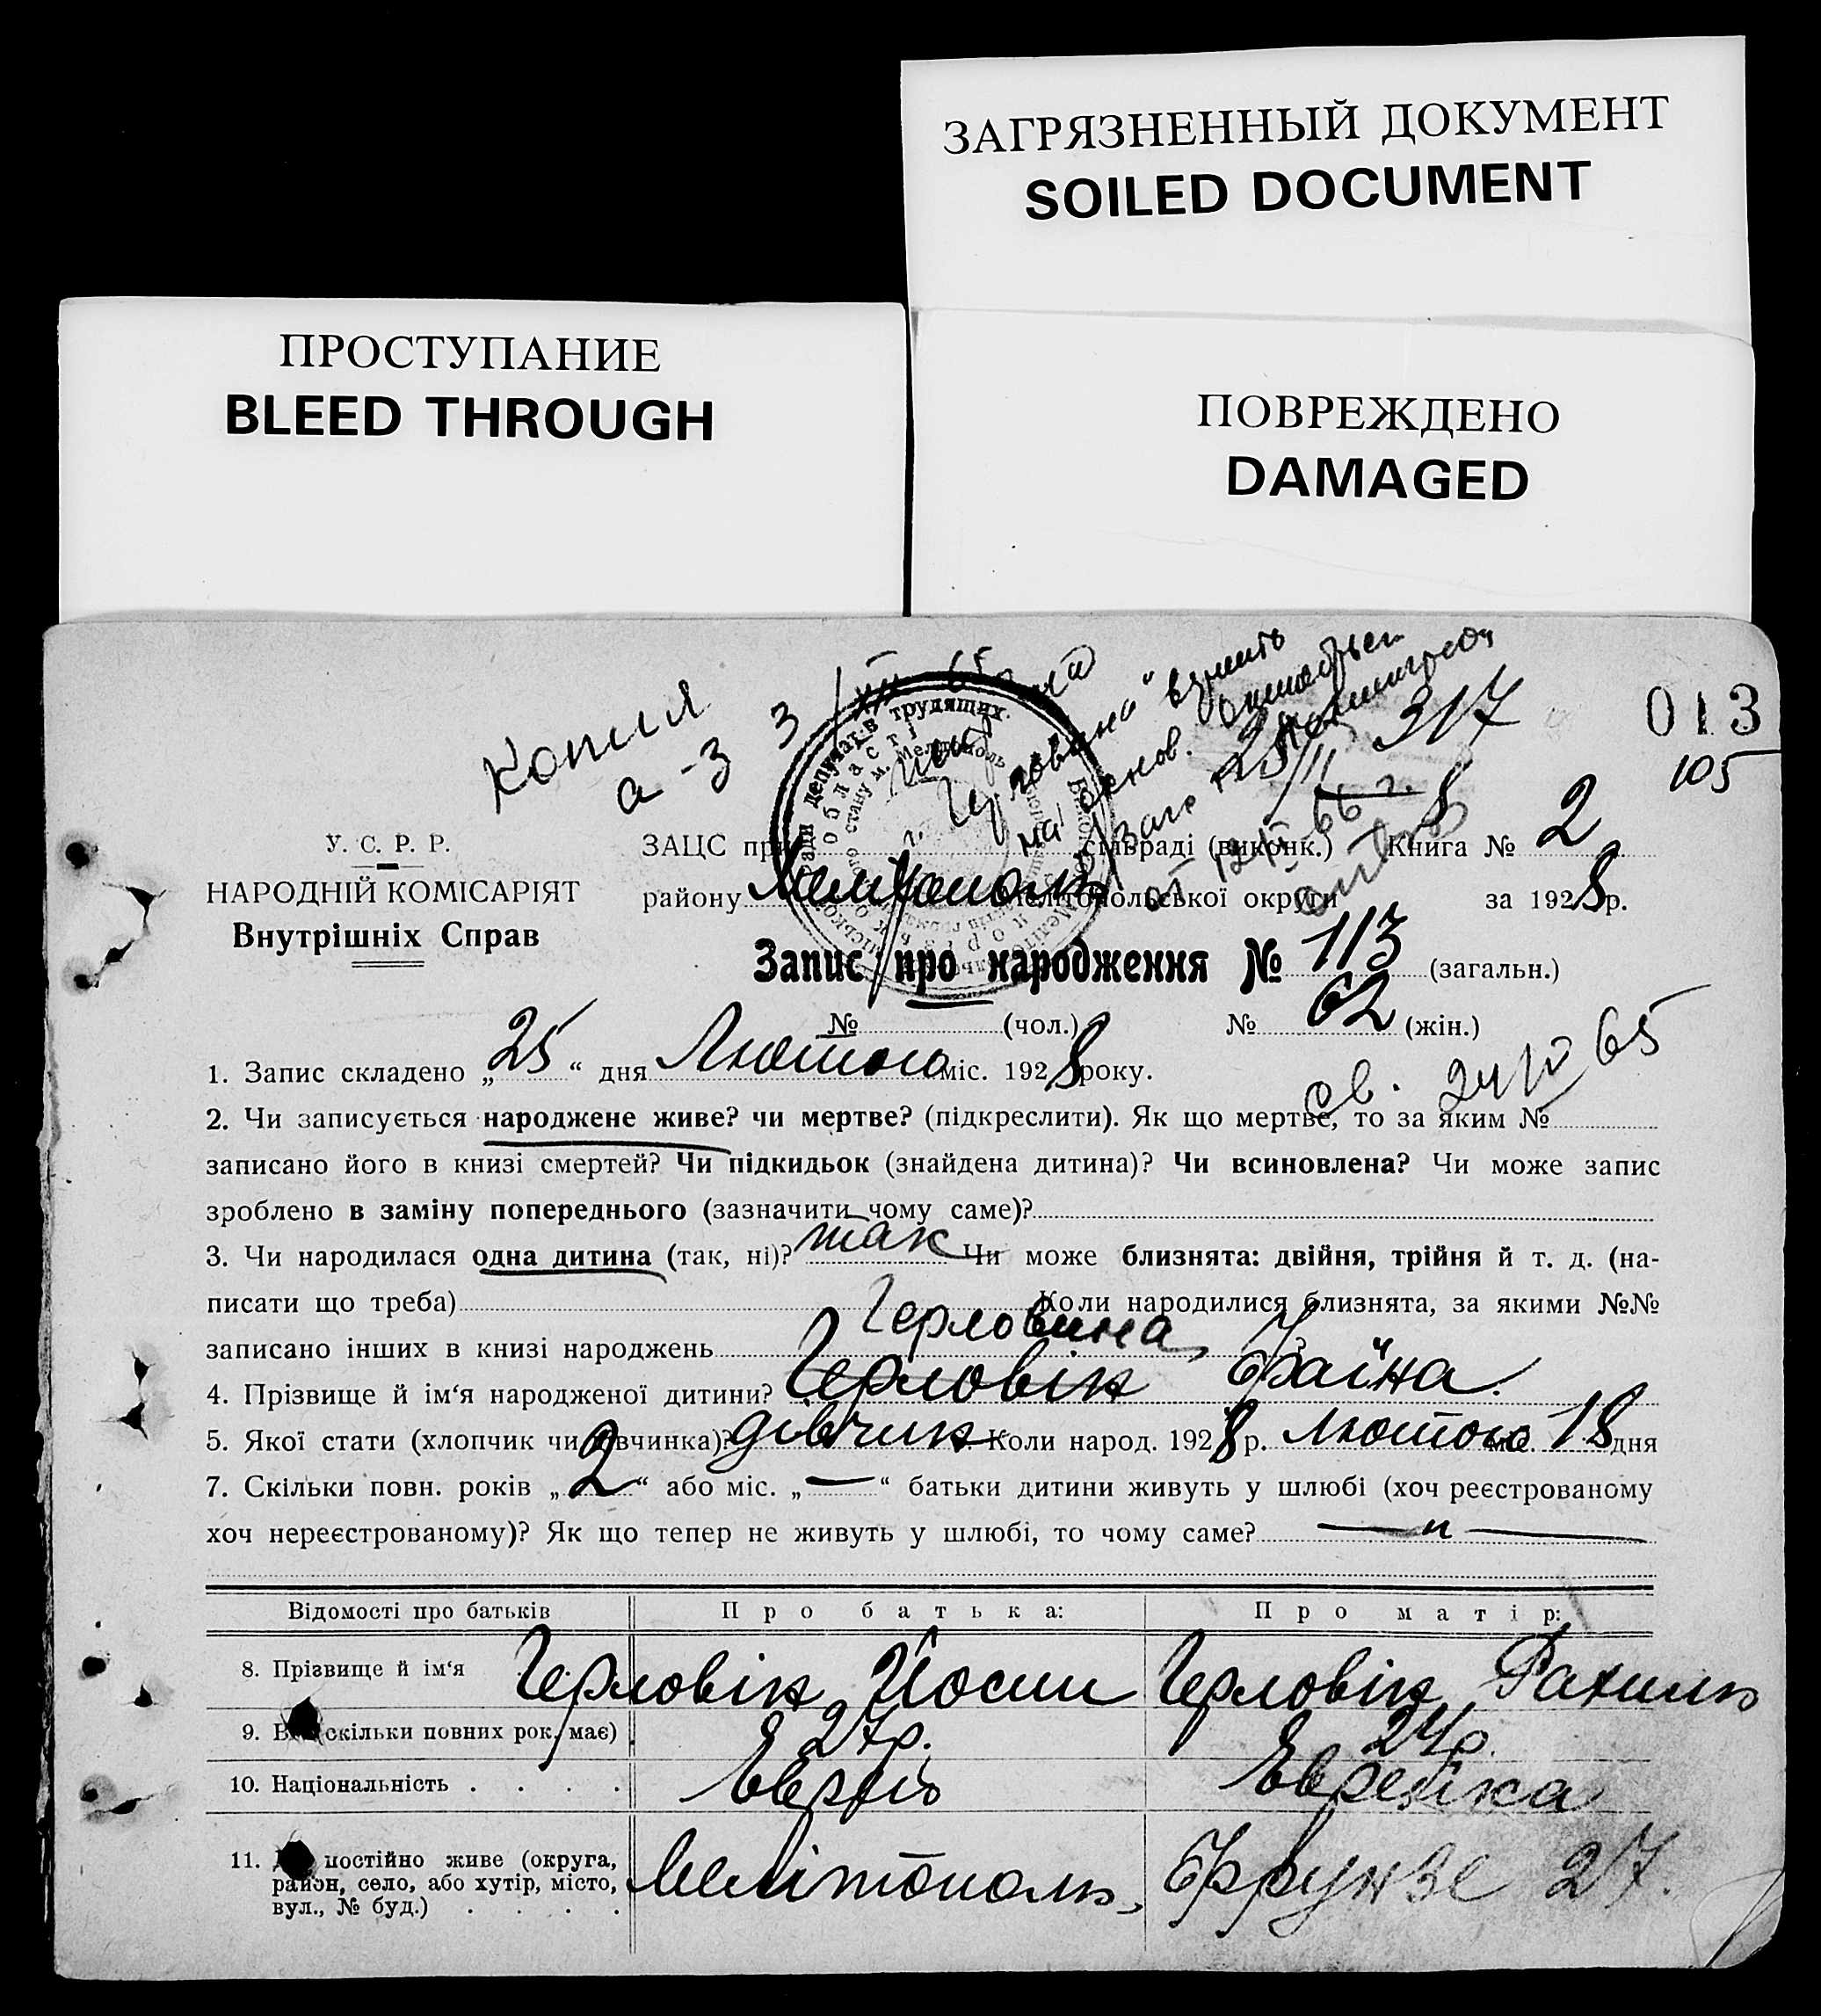 ЗАГРЯЗНЕННЫЙ ДОКУМЕНТ
SOILED DOCUMENT
ПРОСТУПАНИЕ
BLEED THROUGH
ПОВРЕЖДЕНО
DAMAGED
013
105
Копия
а-3 3/XII-65
317
У. С. Р. Р.
НАРОДНІЙ КОМІСАРІЯТ
Внутрішніх Справ
ЗАЦС при сільраді (виконк.) Книга № 2
району Мелітополь Мелітопольської округи за 1928 р.
Запис про народження № 113 (загальн.)
№ (чол.) № 62 (жін.)
1. Запис складено „25“ дня Лютого міс. 1928 року.
св. 24/IV 65
2. Чи записується народжене живе? чи мертве? (підкреслити). Як що мертве, то за яким №
записано його в книзі смертей? Чи підкидьок (знайдена дитина)? Чи всиновлена? Чи може запис
зроблено в заміну попереднього (зазначити чому саме)?
3. Чи народилася одна дитина (так, ні)? так Чи може близнята: двійня, трійня й т. д. (на-
писати що треба) Коли народилися близнята, за якими №№
записано інших в книзі народжень
Герловина
4. Прізвище й ім‘я народженої дитини? Герловін Файна.
5. Якої стати (хлопчик чи дівчинка)? дівчин Коли народ. 1928 р. Лютого міс. 18 дня
7. Скільки повн. років „2“ або міс. „—“ батьки дитини живуть у шлюбі (хоч реєстрованому
хоч нереєстрованому)? Як що тепер не живуть у шлюбі, то чому саме? — „ —
Відомості про батьків Про батька: Про матір:
8. Прізвище й ім‘я Герловін Йосип Герловін Рахиль
9. скільки повних рок. має) 27р. 24р.
10. Національність . . . . Еврей Еврейка
11. постійно живе (округа,
район, село, або хутір, місто,
вул., № буд.) . . . . Мелітополь, Фрунзе 27.